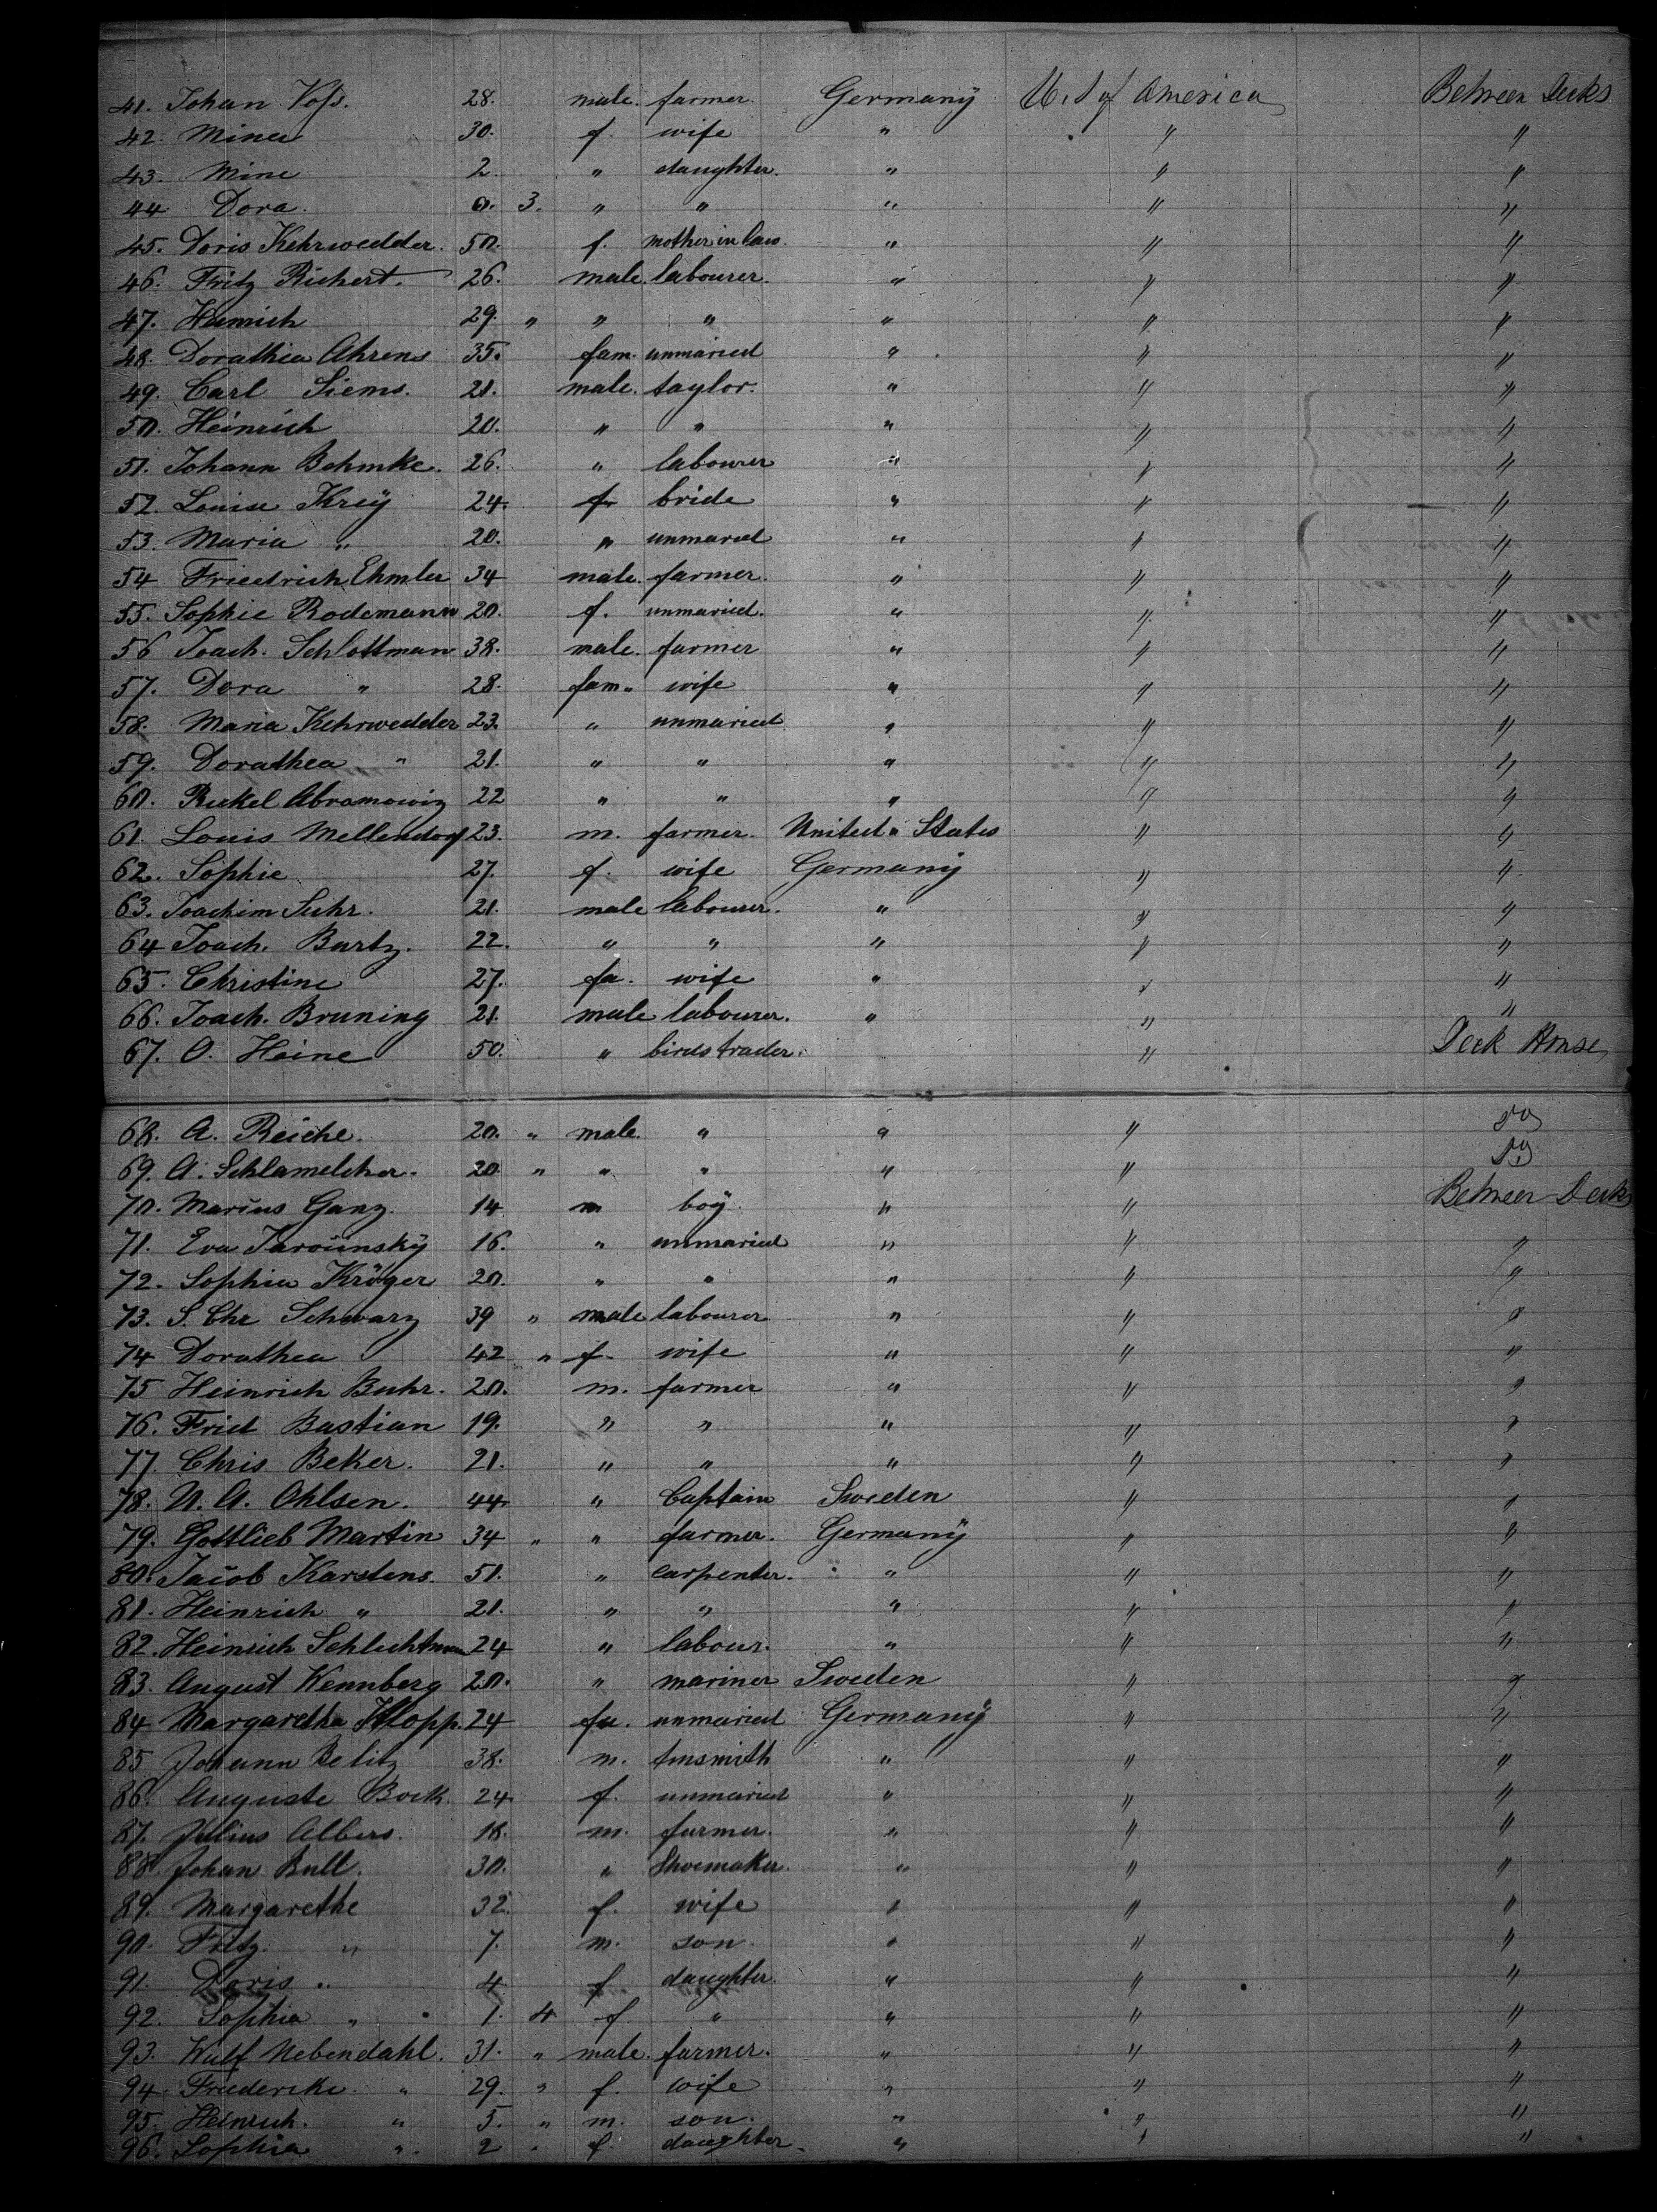 41. Johan Voſs. 28. male. farmer. Germanÿ U. S of America Between Decks
42. Mina 30. f. wife " " "
43. Mine 2. " daughter. " " "
44 Dora. 0. 3. " " " " "
45. Doris Kehrwedder. 50. f. mother in law. " " "
46. Fritz Richert. 26. male. labourer. " " "
47. Heinrich 29. " " " " " "
48. Dorathea Ahrens 35. fam. unmaried " " "
49. Carl Siems. 21. male. taylor. " " "
50. Heinrich 20. " " " " "
51. Johann Behmke. 26. " labourer " " "
52. Louise Kreÿ 24. f. bride " " "
53. Maria " 20. " unmaried " " "
54 Friedrich Ehmler 34 male. farmer. " " "
55. Sophie Rodemann 20. f. unmaried. " " "
56 Joach. Schlottman 38. male. farmer " " "
57. Dora " 28. fam. wife " " "
58. Maria Kehrwedder 23. " unmaried " " "
59. Dorathea " 21. " " " " "
60. Rekel Abramowiz 22 " " " " "
61. Louis Mellendorf 23. m. farmer. United States " "
62. Sophie 27. f. wife Germanÿ " "
63. Joachim Suhr. 21. male labourer. " " "
64 Joach. Bartz. 22. " " " " "
65. Christine 27. fa. wife " " "
66. Joach. Bruning 21. male labourer. " " "
67. O. Heine 50. " birds trader. " Deck House
68. A. Reiche. 20. " male. " " " do
69. A. Schlamelcher. 20. " " " " " do
70. Marius Ganz. 14 m boÿ. " " Between Decks
71. Eva Jarounskÿ 16. " unmaried " " "
72. Sophia Kröger 20. " " " " "
73. S. Chr Schwarz 39 " male labourer " " "
74 Dorathea 42 " f. wife " " "
75 Heinrich Buhr. 20. m. farmer " " "
76. Fried Bastian 19. " " " " "
77. Chris Beker. 21. " " " " "
78. N. A. Ohlsen. 44. " Captain Sweden " "
79. Gottlieb Martin 34 " " farmer. Germanÿ " "
80. Jacob Karstens. 51. " carpenter. " " "
81. Heinrich " 21. " " " " "
82. Heinrich Schlichtman 24 " labour. " " "
83. August Wennberg 20. " mariner Sweden " "
84 Margaretha Klopp. 24 fa. unmaried Germanÿ " "
85 Johann Belitz 38. m. tinsmith " " "
86. Auguste Bock. 24. f. unmaried " " "
87. Julius Albers. 18. m. farmer. " " "
88. Johan Bull. 30. " Shoemaker. " " "
89. Margarethe 32. f. wife " " "
90. Fritz. " 7. m. son. " " "
91. Doris " 4 f daughter. " " "
92. Sophia " 1. 4 f. " " " "
93. Wulf Nebendahl. 31. " male. farmer. " " "
94. Friedericke " 29. " f. wife " " "
95. Heinrich. " 5. " m. son. " " "
96. Sophia " 2 " f. daughter. " " "